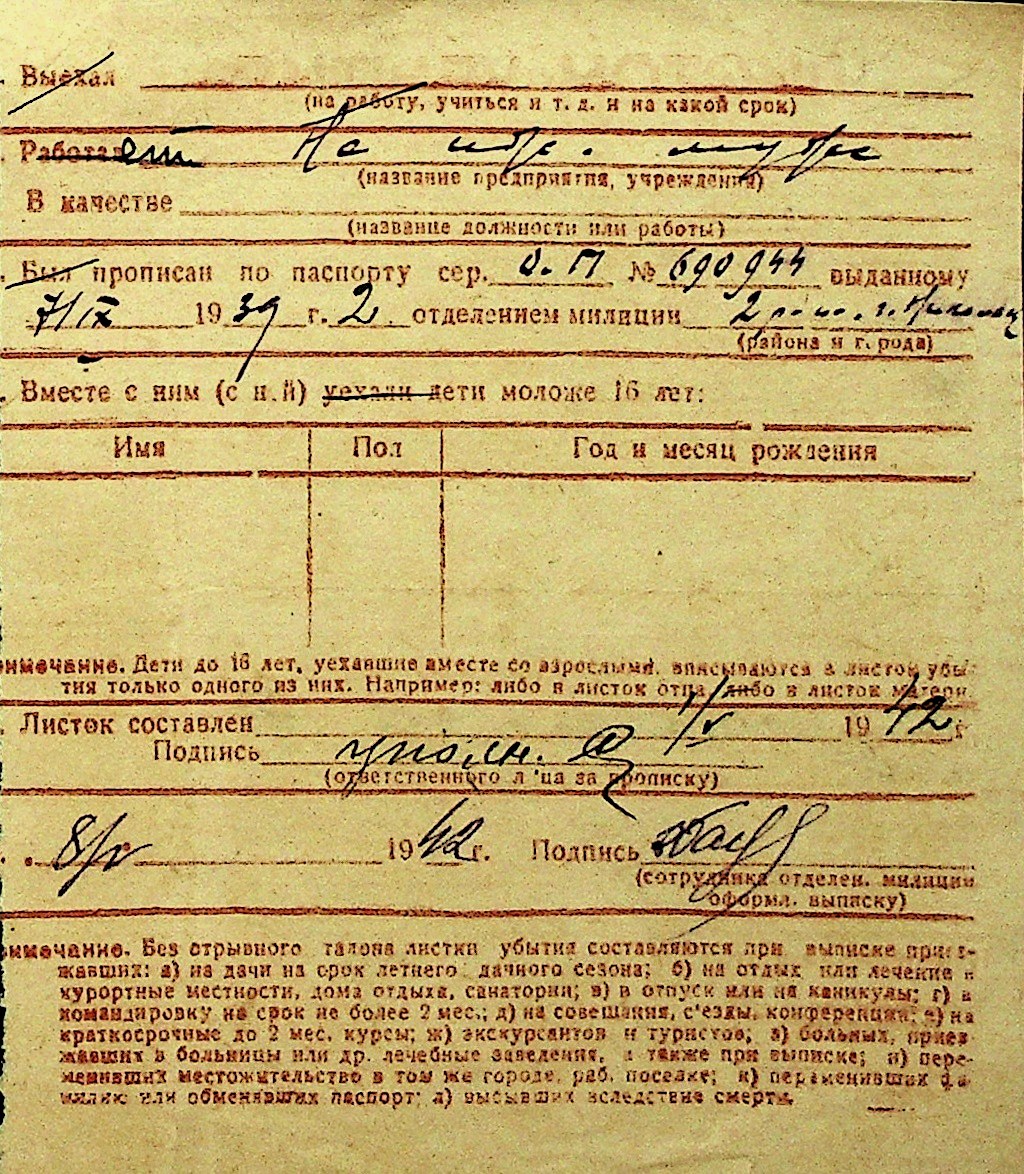 . Выехал
(на работу, учиться и т. д. и на какой срок)
. Работает На
(название предприятия, учреждения)
В качестве
(название должности или работы)
. Был прописан по паспорту сер. О. П № 690944 выданному
7/IX 1939 г. 2 отделением милиции 2
(района и города)
. Вместе с ним (с н.й) уехали дети моложе 16 лет:
Имя Пол Год и месяц рождения
имечание. Дети до 16 лет, уехавшие вместе со взрослыми, вписываются в листок убы-
тия только одного из них. Например: либо в листок отца, либо в листок матери.
. Листок составлен 1/V 1942 г
Подпись уполн.
(ответственного л ца за прописку)
. 8/V 1942 г. Подпись
(сотрудника отделен. милиции
оформл. выписку)
имечание. Без отрывного талона листки убытия составляются при выписке приез-
жавших: а) на дачи на срок летнего дачного сезона; б) на отдых или лечение в
курортные местности, дома отдыха, санатории; в) в отпуск или на каникулы; г) в
командировку на срок не более 2 мес.; д) на совещания, с'езды, конференции; е) на
краткосрочные до 2 мес. курсы; ж) экскурсантов и туристов; з) больных, приез-
жавших в больницы или др. лечебные заведения, а также при выписке; и) пере-
менивших местожительство в том же городе, раб. поселке; к) переменивших фа-
милию или обменявших паспорт; л) выбывших вследствие смерти.